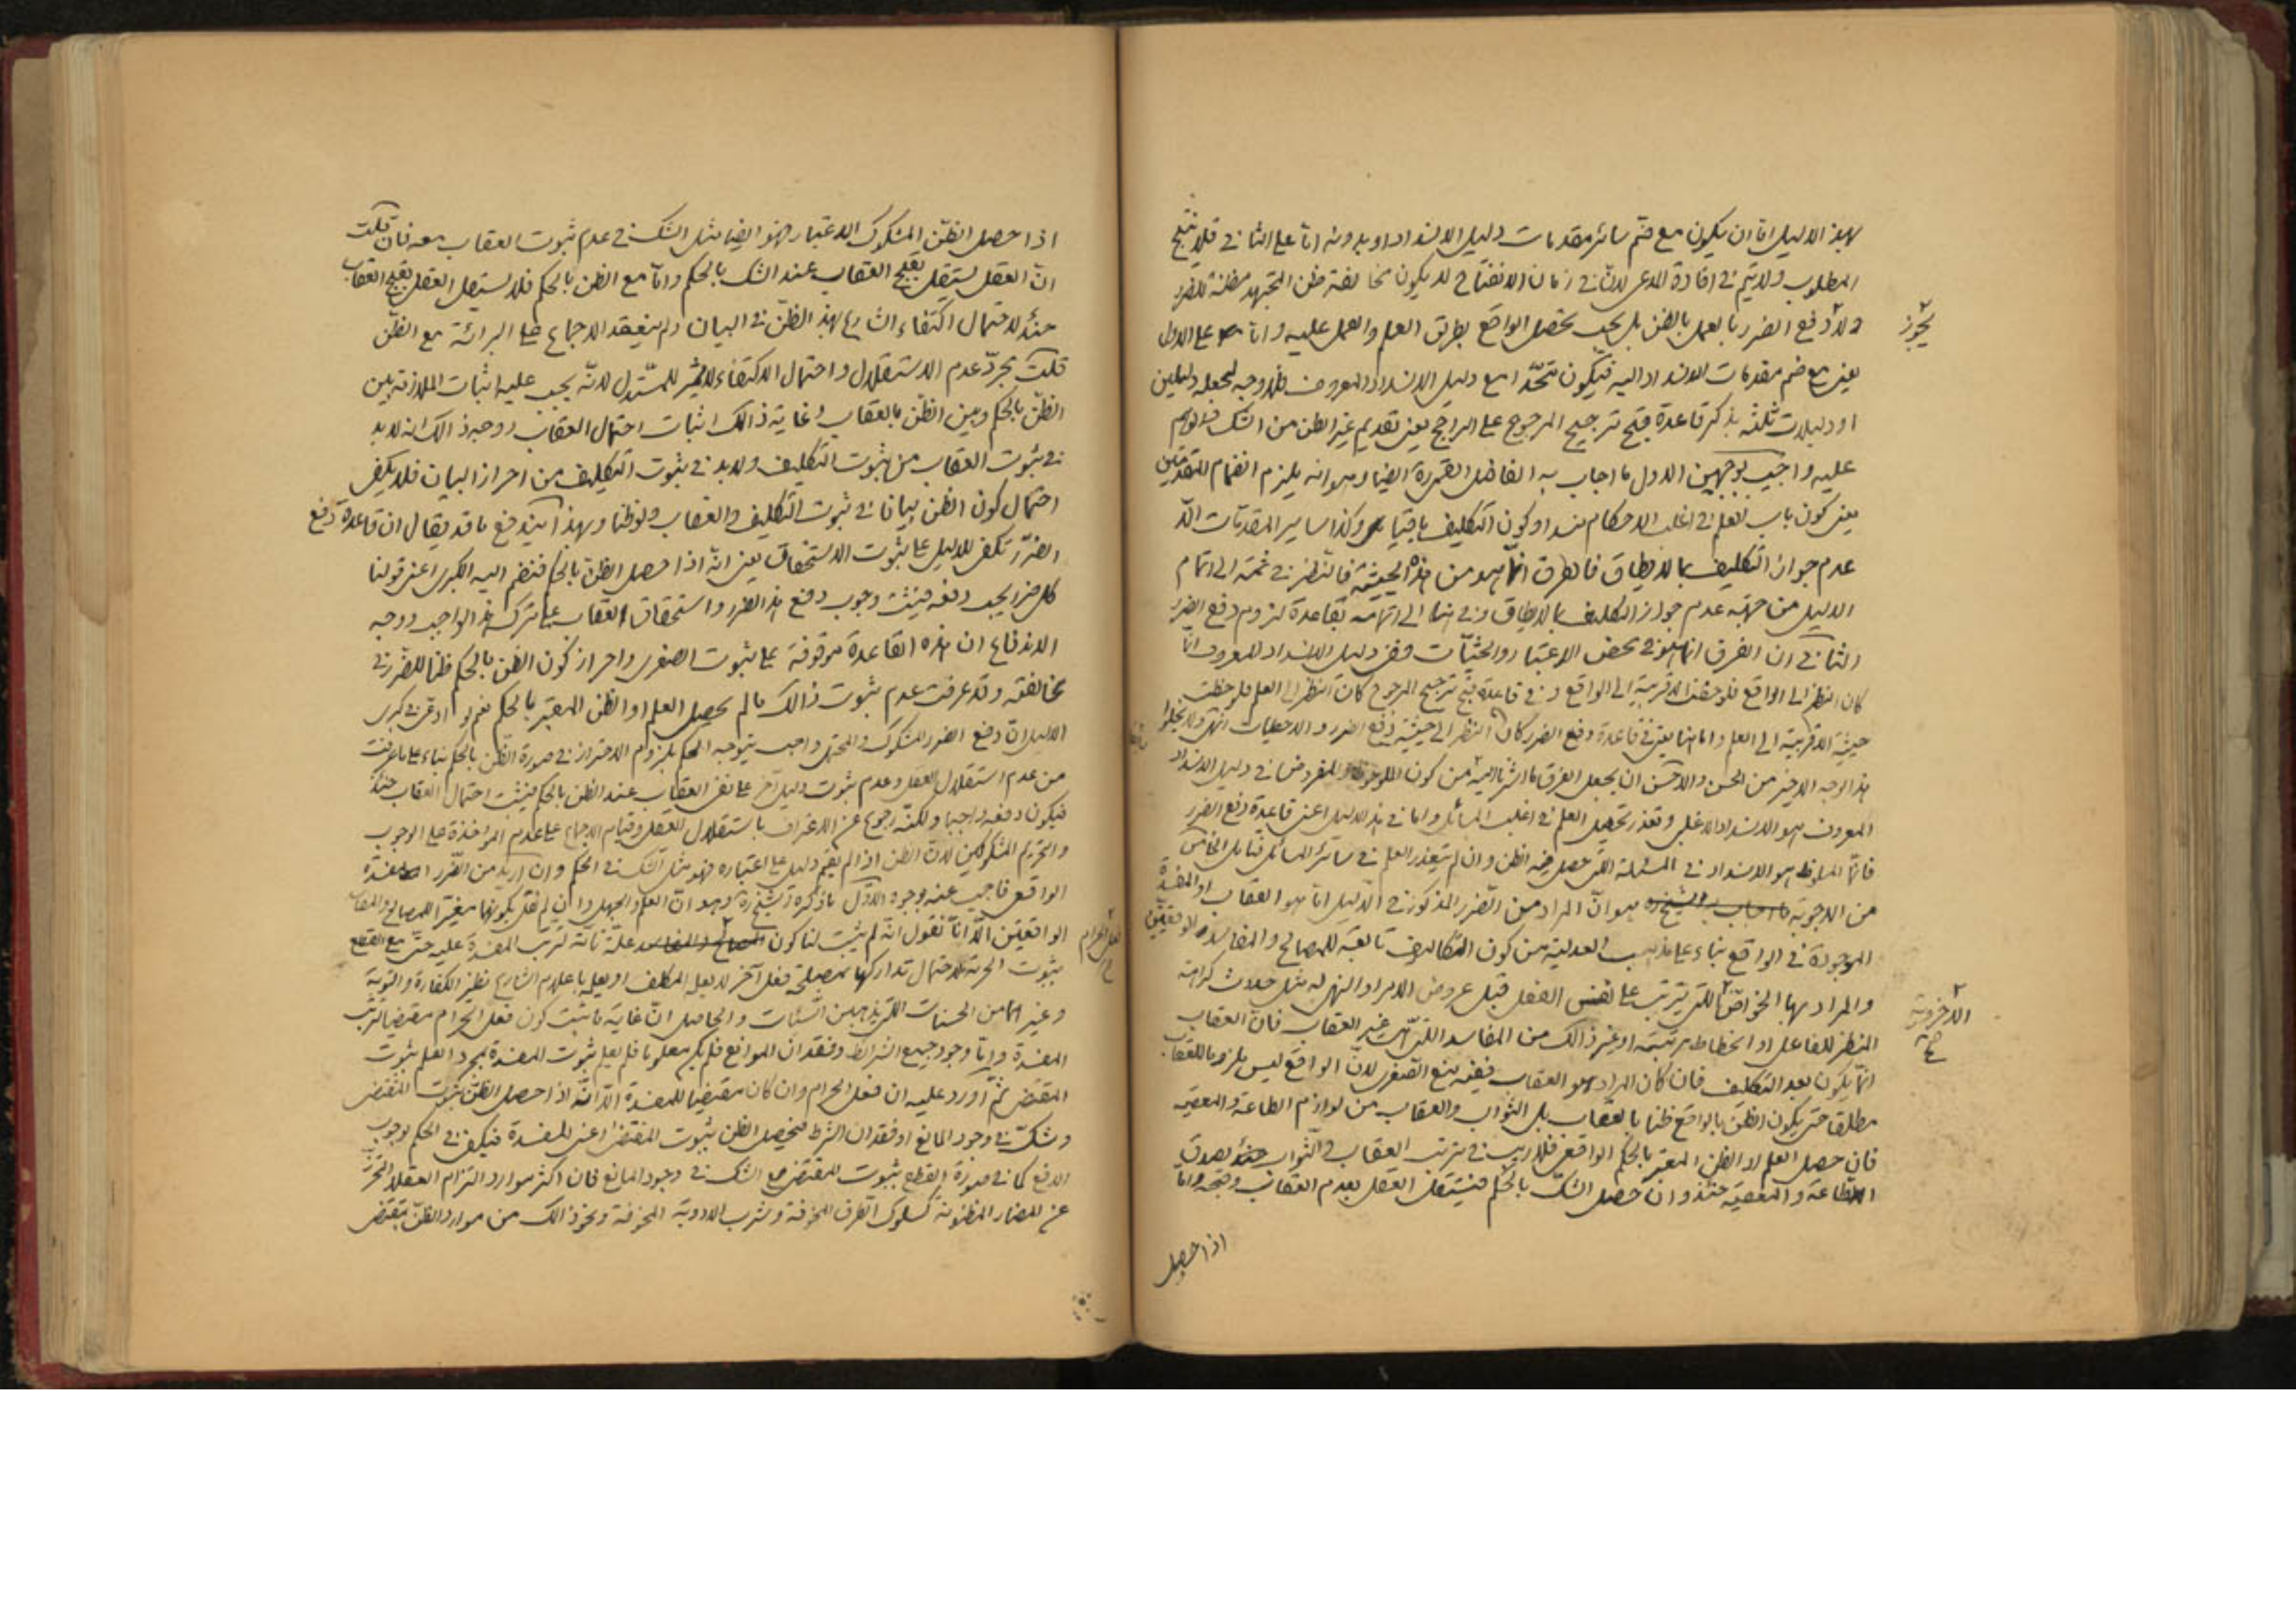 بهذا الدليل اما ان يكون مع ضم سائر مقدمات دليل الانسداد او بدونه اما على الثاني فلا ينتج
المطلوب ولا يتم في افادة المدعى لان في زمان الانفتاح لا يكون مخالفة ظن المجتهد مظنة للضرر
ولا دفع الضرر بالعمل بالظن بل يجب تحصيل الواقع بطريق العلم والعمل عليه واما على الاول
يجوز
يعني مع ضم مقدمات الانسداد اليه فيكون متحدا مع دليل الانسداد المعروف فلا وجه لجعله دليلين
او دليلات ثلثة بذكر قاعدة قبح ترجيح المرجوح على الراجح يعني تقديم غير الظن من الشك والوهم
عليه واجيب بوجهين الاول ما اجاب به الفاضل ايضا وهو انه يلزم انضمام المقدمتين
يعني كون باب العلم في اغلب الاحكام منسدا وكون التكليف باقيا وكذا ساير المقدمات الا
عدم جواز التكليف بما لا يطاق فالفرق انما هو من هذه الحيثية فالنظر في ثمة الى اتمام
الدليل من جهة عدم جواز التكليف بما لا يطاق وفي هنا الى اتمامه بقاعدة لزوم دفع الضرر
الثاني ان الفرق انما هو في محض الاعتبار والحيثيات ففي دليل الانسداد المعروف انما
كان النظر الى الواقع فلوحظت الاقربية الى الواقع وفي قاعدة قبح ترجيح المرجوح كان النظر الى العلم فلوحظت
حيثية الاقربية الى العلم واما هنا يعني في قاعدة دفع الضرر كان النظر الى حيثية دفع الضرر والاحتياط انتهى ولا يخلوا
هذا الوجه الاخير من الحسن والاحسن ان يجعل الفرق ما اشرنا اليه من كون الملحوظ والمفروض في دليل الانسداد
المعروف هو الانسداد الاغلبي وتعذر تحصيل العلم في اغلب المسائل واما في هذا الدليل اعني قاعدة دفع الضرر
فانما الملحوظ هو الانسداد في المسئلة التي حصل فيه الظن وان لم يتعذر العلم في سائر المسائل فتأمل الخامس
من الاجوبة ما اجاب به الشيخ ره هو ان المراد من الضرر المذكور في الدليل اما هو العقاب او المفسدة
الموجودة في الواقع بناء على مذهب العدلية من كون التكاليف تابعة للمصالح والمفاسد الواقعيتين
والمراد بها الخواص التي يترتب على نفس الفعل قبل عروض الامر او النهي له مثل حدوث كراهة
الاخروية
صح
المنظر للفاعل او انحطاط مرتبته او غير ذالك من المفاسد التي هي غير العقاب فان العقاب
انما يكون بعد التكليف فان كان المراد هو العقاب ففيه منع الصغرى لان الواقع ليس ملزوما للعقاب
مطلقا حتى يكون الظن بالواقع ظنا بالعقاب بل الثواب والعقاب من لوازم الطاعة والمعصية
فان حصل العلم او الظن المعتبر بالحكم الواقعي فلا ريب في ترتب العقاب والثواب لصدق
الطاعة والمعصية حينئذ وان حصل الشك بالحكم فيستقل العقل بعدم العقاب وقبحه واما
اذا حصل
اذا حصل الظن المشكوك الاعتبار فهو ايضا مثل الشك في عدم ثبوت العقاب معه فان قلت
ان العقل يستقل بقبح العقاب عند الشك بالحكم واما مع الظن بالحكم فلا يستقل العقل بقبح العقاب
حينئذ لاحتمال اكتفاء الشارع بهذا الظن في البيان ولم ينعقد الاجماع على البرائة مع الظن
قلت مجرد عدم الاستقلال واحتمال الاكتفاء لا يثمر للمستدل لانه يجب عليه اثبات الملازمة بين
الظن بالحكم وبين الظن بالعقاب وغاية ذالك اثبات احتمال العقاب ووجه ذالك انه لابد
في ثبوت العقاب من ثبوت التكليف ولابد في ثبوت التكليف من احراز البيان فلا يكفي
احتمال كون الظن بيانا في ثبوت التكليف والعقاب ولو ظنا وبهذا يندفع ما قد يقال ان قاعدة دفع
الضرر تكفي للدليل على ثبوت الاستحقاق يعني انه اذا حصل الظن بالحكم فنضم اليه الكبرى اعني قولنا
كل ضرر يجب دفعه فيثبت وجوب دفع هذا الضرر واستحقاق العقاب على ترك هذا الواجب ووجه
الاندفاع ان هذه القاعدة موقوفة على ثبوت الصغرى واحراز كون الظن بالحكم ظنا للضرر في
مخالفته وقد عرفت عدم ثبوت ذالك ما لم يحصل العلم او الظن المعتبر بالحكم نعم لو ادعى في كبرى
الدليل ان دفع الضرر المشكوك والمحتمل واجب يتوجه الحكم بلزوم الاحتراز في صورة الظن بالحكم بناء على ما عرفت
من عدم استقلال العقل وعدم ثبوت دليل آخر على نفي العقاب عند الظن بالحكم فيثبت احتمال العقاب حينئذ
فيكون دفعه واجبا ولكنه رجوع عن الاعتراف باستقلال العقل وقيام الاجماع على عدم المؤاخذة على الوجوب
والتحريم المشكوكين لان الظن اذا لم يقم دليل على اعتباره فهو مثل الشك في الحكم وان اريد من الضرر المفسدة
الواقعي فاجيب عنه بوجوه الاول ما ذكره الشيخ ره وهو ان العلم والجهل وان لم نقل بكونهما مغيرا للمصالح والمفاسد
الواقعيتين الا انا نقول انه لم يثبت لنا كون المصالح والمفاسد علة تامة لترتب المفسدة عليه حتى مع القطع
فعل الحرام
صح
بثبوت الحرمة لاحتمال تداركها بمصلحة فعل آخر لا يعلمه المكلف او يعلمه باعلام الشارع نظير الكفارة والتوبة
وغيرهما من الحسنات التي يذهبن السيئات والحاصل ان غاية ما ثبت كون فعل الحرام مقتضيا لترتب
المفسدة واما وجود جميع الشرائط وفقدان الموانع فلم يكن معلوما فلم يعلم ثبوت المفسدة بمجرد العلم بثبوت
المقتضي ثم اورد عليه ان فعل الحرام وان كان مقتضيا للمفسدة الا انه اذا حصل الظن بثبوت المقتضي
وشك في وجود المانع او فقدان الشرط فيحصل الظن بثبوت المقتضي اعني المفسدة فيكفي في الحكم بوجوب
الدفع كما في صورة القطع بثبوت المقتضي مع الشك في وجود المانع فان اكثر موارد التزام العقلاء التحرز
عن المضار المظنونة كسلوك الطرق المخوفة وشرب الادوية المخوفة ونحو ذالك من موارد الظن بمقتضي